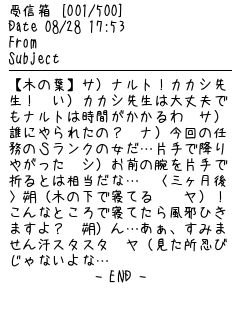 受信箱 [001/500]
Date 08/28 17:53
From
Subject
【木の葉】サ）ナルト！カカシ先
生！　い）カカシ先生は大丈夫で
もナルトは時間がかかるわ　サ）
誰にやられたの？　ナ）今回の任
務のＳランクの女だ…片手で降り
やがった　シ）お前の腕を片手で
折るとは相当だな…　〈三ヶ月後
〉朔（木の下で寝てる　　ヤ）！
こんなところで寝てたら風邪ひき
ますよ？　朔）ん…あぁ、すみま
せん汗スタスタ　ヤ（見た所忍び
じゃないよな…
- END -